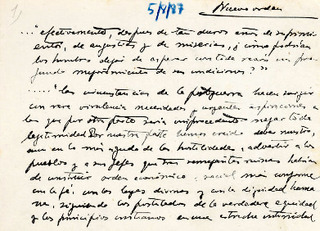 5/1/87
Nuevo orden
..."efectivamente, después de tan duros años de sufrimi-
ento, de angustias y de miserias, ¿cómo podrían
los hombres dejar de esperar con toda razón un pro-
fundo mejoramiento de sus condiciones?"
....."las circunstancias de la postguerra hacen surgir
con rara virulencia necesidades y urgentes aspiraciones a
las que por otra parte sería improcedente negar toda
legitimidad. Por nuestra parte hemos creído deber nuestro,
aun en lo más agudo de las hostilidades, advertir a los
pueblos y a sus jefes que tras semejantes ruinas habían
de instituir orden económico y social más conforme
en la fe, con las leyes divinas y con la dignidad huma-
na, siguiendo los postulados de la verdadera equidad
y los principios cristianos en una estrecha intimidad